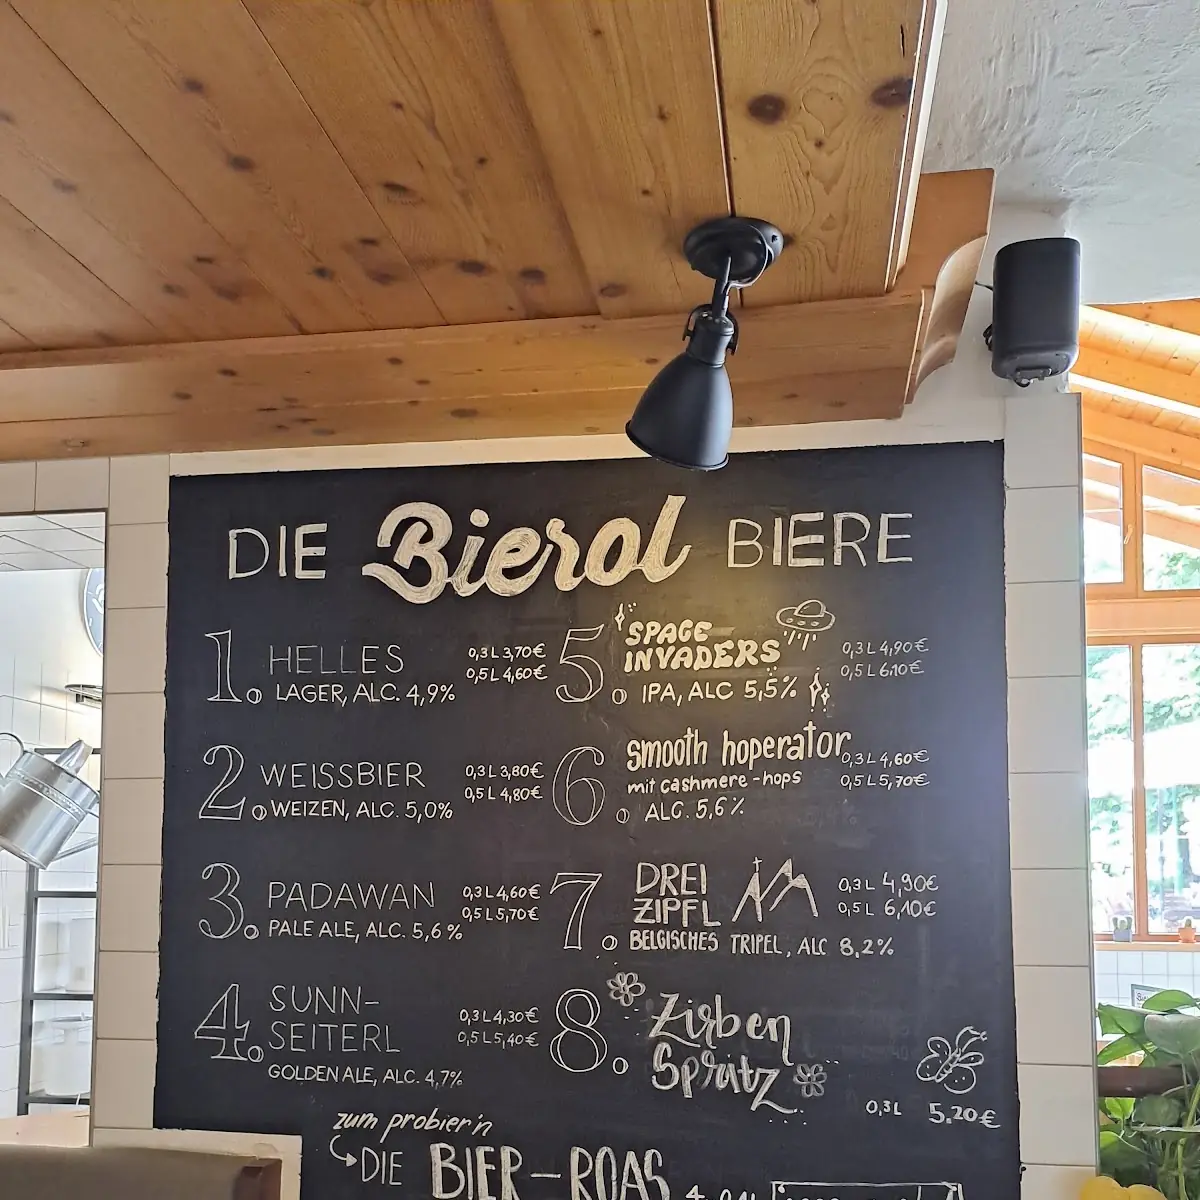 DIE Bierol BIERE
1. HELLES
LAGER, ALC. 4,9%
0,3L 3,70€
0,5L 4,60€
2. WEISSBIER
WEIZEN, ALC. 5,0%
0,3L 3,80€
0,5L 4,80€
3. PADAWAN
PALE ALE, ALC. 5,6%
0,3L 4,60€
0,5L 5,70€
4. SUNN-
SEITERL
GOLDEN ALE, ALC. 4,7%
0,3L 4,30€
0,5L 5,40€
5. SPACE
INVADERS
IPA, ALC 5,5%
0,3L 4,90€
0,5L 6,10€
6. smooth hoperator
mit cashmere-hops
ALC. 5,6%
0,3L 4,60€
0,5L 5,70€
7. DREI
ZIPFL
BELGISCHES TRIPEL, ALC 8,2%
0,3L 4,90€
0,5L 6,10€
8. Zirben
Spritz
0,3L 5.20€
zum probier'n
DIE BIER-ROAS